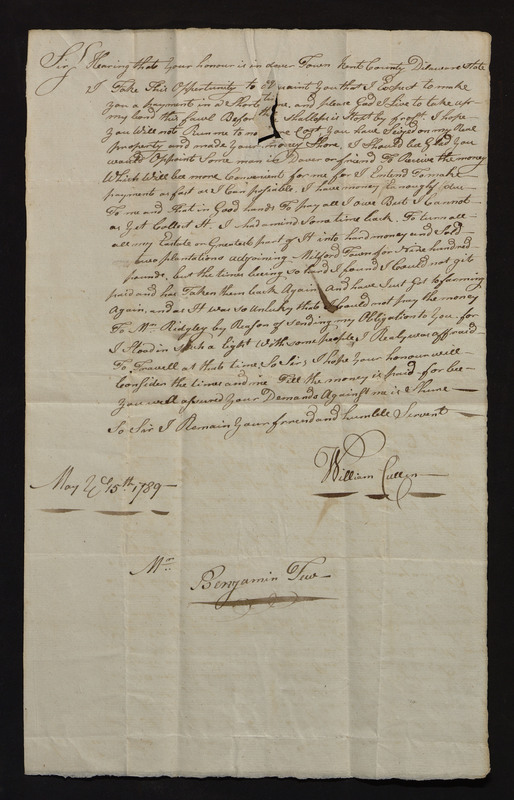 Sir/ Hearing that your honour is in dover Town Kent County Delaware State
I Take This Oppertunity to acquaint you that I Expect to make
you a payment in a Short time, and please God I Live to take up
my bond this fawl Before the
You Will not Run me to no more Cost You have Seized on my Real
property and made your money Shore, I Should be Glad You
would Oppoint Some man in Dover or friend To Receive the money
Which Will be more Convenient for me for I Entend To make
payment as fast as I Can posible, I have money Enough due
To me and that in Good hands To pay all I owe But I Cannot
as yet Collect It. I had a mind Some time back To turn all
all my Estate or Greatest part of It into hard money and Sold
two plantations adjoining Milford Town for Nine hundred
pounds, but the times being so hard I found I Could not git
paid and has Taken them back Again and have Just Got to farming
Again, and as It was so unlucky that I Could not pay the money
To Mr. Ridgley by Reason of Sending my Obligation to You, for
I Stood in Such a light With some people I Realy was affraid
To Travell at that time, So Sir, I hope Your honour will
Consider the times and me Till the money is paid for be
You well assured Your Demands Against me is Shure
So Sir I Remain Your friend and humble Servent
William Cullen
May ye 15th 1789
Mr.
Benjamin